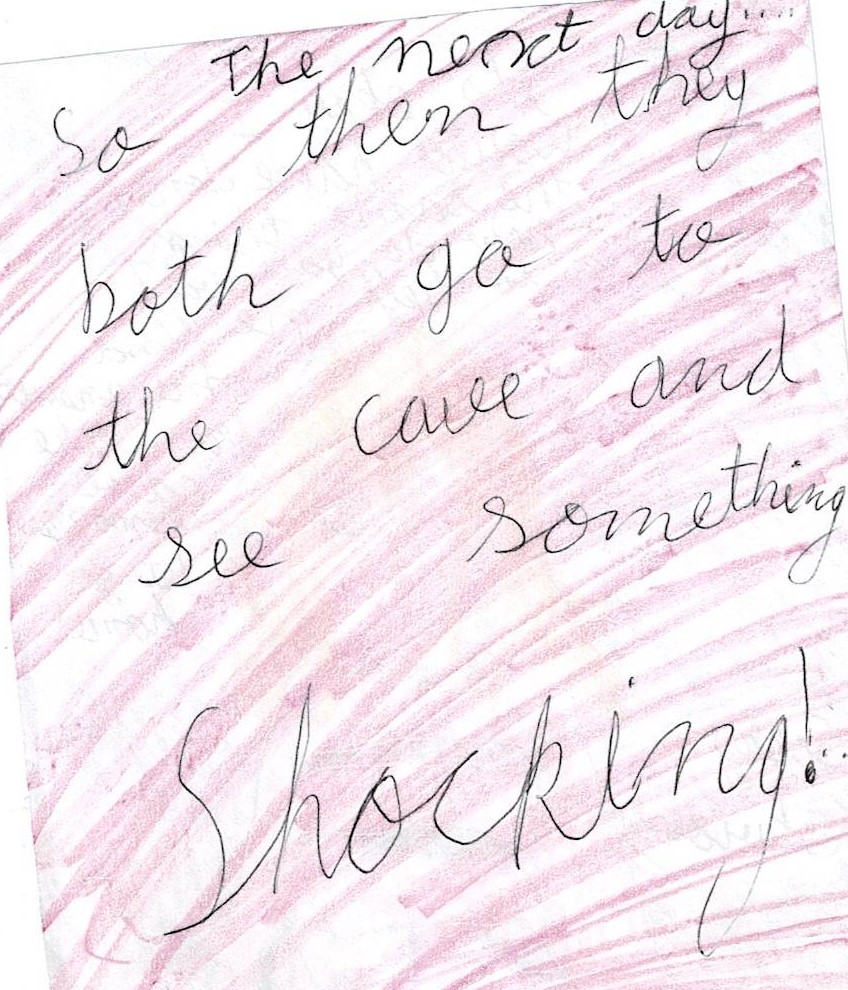 The next day....
So then they
both go to
the cave and
see something
Shocking!..